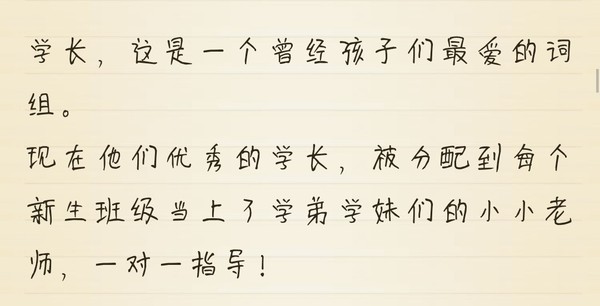 学长，这是一个曾经孩子们最爱的词
组。
现在他们优秀的学长，被分配到每个
新生班级当上了学弟学妹们的小小老
师，一对一指导！